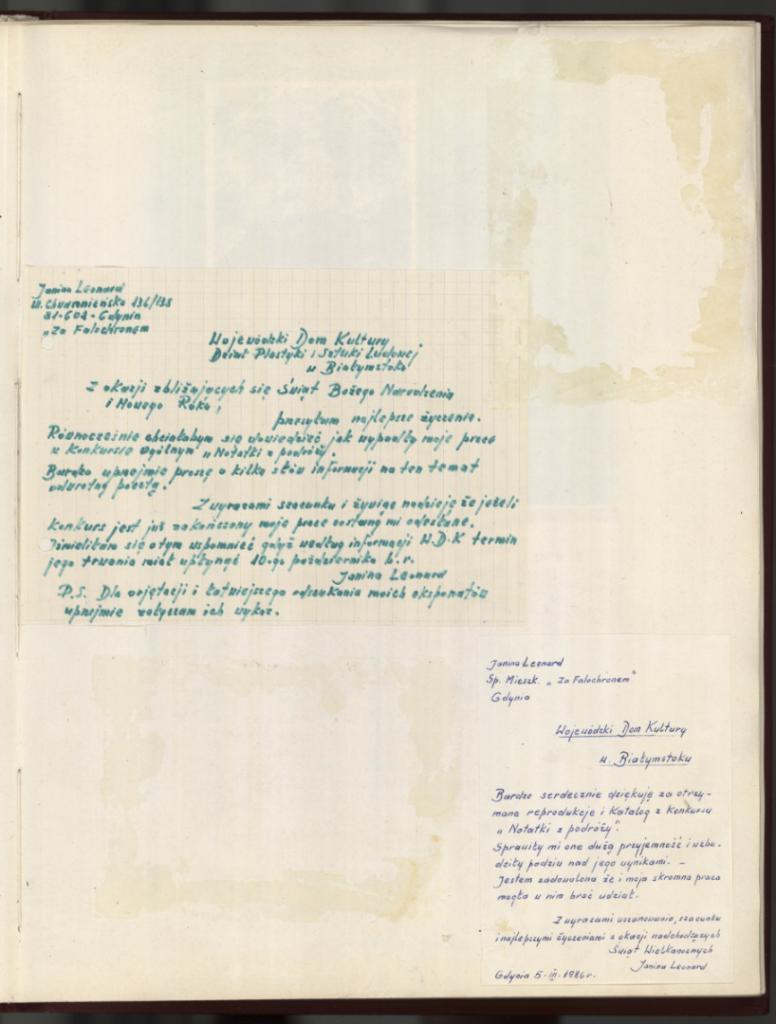 Janina Leonard
ul. Chwarznieńska 136/138
81-602 - Gdynia
"Za Falochronem
Wojewódzki Dom Kultury
Dział Plastyki i Sztuki Ludowej
w Białymstoku
Z okazji zbliżających się Świąt Bożego Narodzenia
i Nowego Roku,
przesyłam najlepsze życzenia.
Równocześnie chciałabym się dowiedzieć jak wypadły moje prace
w konkursie ogólnym "Notatki z podróży".
Bardzo uprzejmie proszę o kilka słów informacji na ten temat
odwrotną pocztą.
Z wyrazami szacunku i żywię nadzieję że jeżeli
konkurs jest już zakończony moje prace zostaną mi odesłane.
Ośmieliłam się o tym wspomnieć gdyż według informacji W.D.K termin
jego trwania miał upłynąć 10-go października b.r.
Janina Leonard
P.S. Dla orjętacji i łatwiejszego odszukania moich eksponatów
uprzejmie załączam ich wykaz.
Janina Leonard
Sp. Mieszk. "Za Falochronem"
Gdynia
Wojewódzki Dom Kultury
w. Białymstoku
Bardzo serdecznie dziękuję za otrzy-
mane reprodukcje i Katalog z Konkursu
"Notatki z podróży".
Sprawiły mi one dużą przyjemność i wzbu-
dziły podziw nad jego wynikami. -
Jestem zadowolona że i moja skromna praca
mogła w nim brać udział.
Z wyrazami uszanowania, szacunku
i najlepszymi życzeniami z okazji nadchodzących
Świąt Wielkanocnych
Janina Leonard
Gdynia 5-III-1986r.